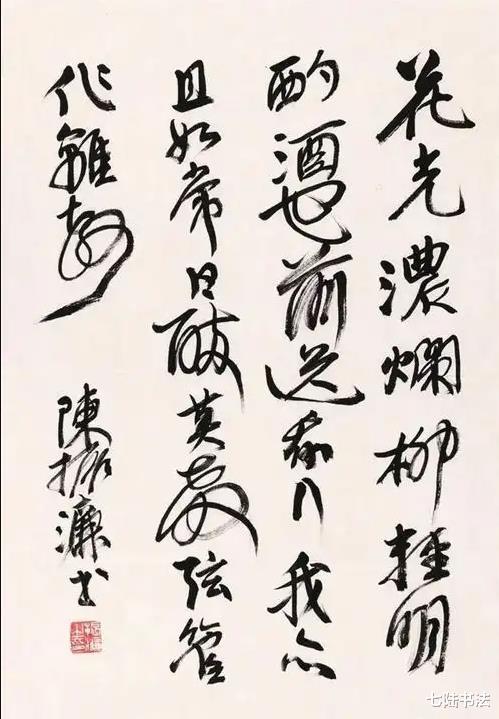 花光濃爛柳輕明
酌酒花前送我行我亦
且如常日醉莫教弦管
作離聲
陳振濂書
七陆书法